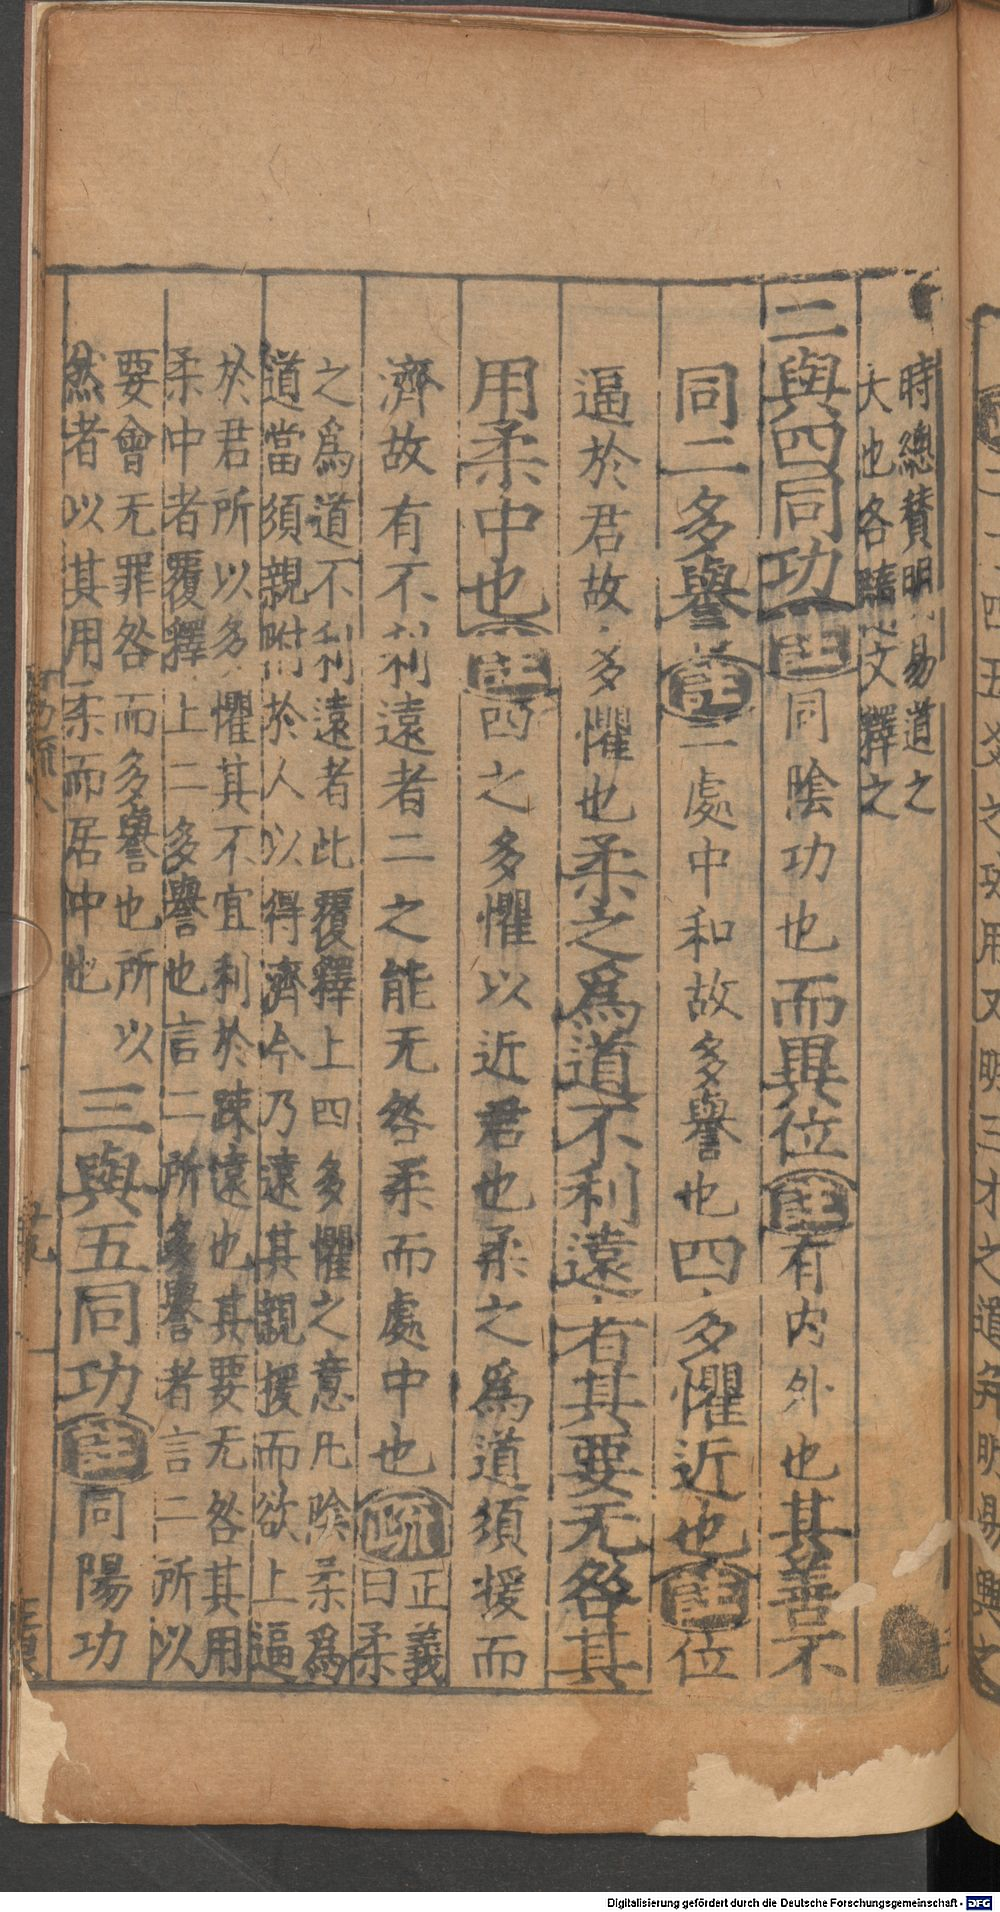 時總贊明易道之
大也各隨文釋之
二與四同功註同陰功也而異位註有内外也其善不
同二多譽註二處中和故多譽也四多懼近也註位
逼於君故多懼也柔之爲道不利遠者其要无咎其
用柔中也註四之多懼以近君也柔之爲道須援而
濟故有不利遠者二之能无咎柔而處中也疏正義
曰柔
之爲道不利遠者此覆釋上四多懼之意凡陰柔爲
道當須親附於人以得濟今乃遠其親援而欲上逼
於君所以多懼其不宜利於踈遠也其要无咎其用
柔中者覆釋上二多譽也言二所多譽者言二所以
要會无罪咎而多譽也所以
然者以其用柔而居中也
三與五同功註同陽功
Digitalisierung gefördert durch die Deutsche Forschungsgemeinschaft - DFG